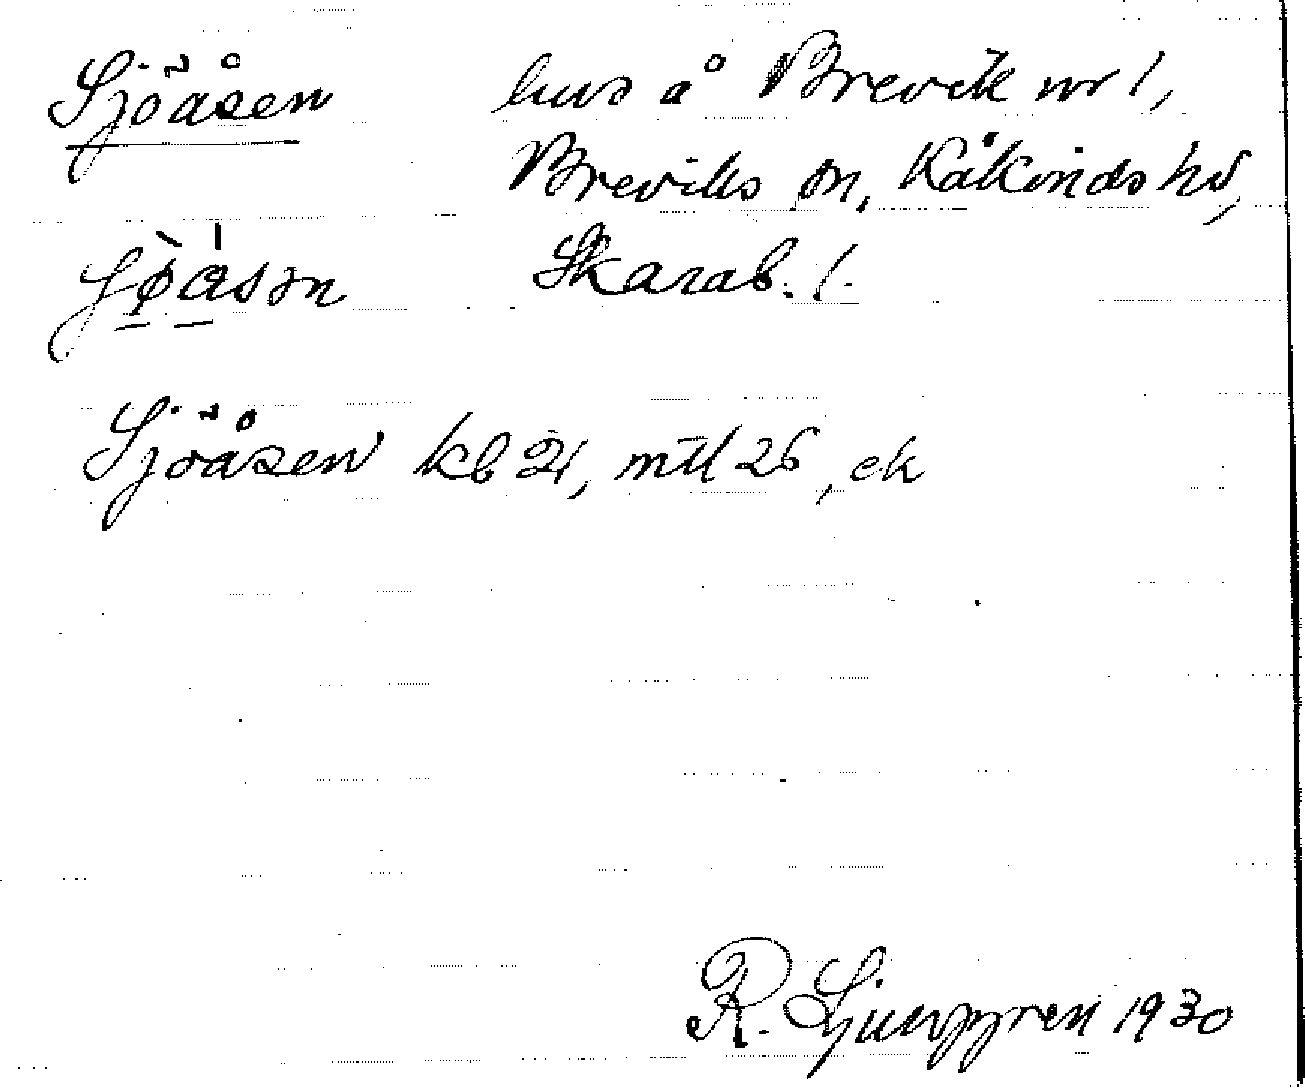 Sjöåsen hus å Brevik nr 1,
Breviks sn, Kåkinds hd,
Skarab. l.
Sjöåsen kb 21, mtl 26, ek
R. Ljunggren 1930